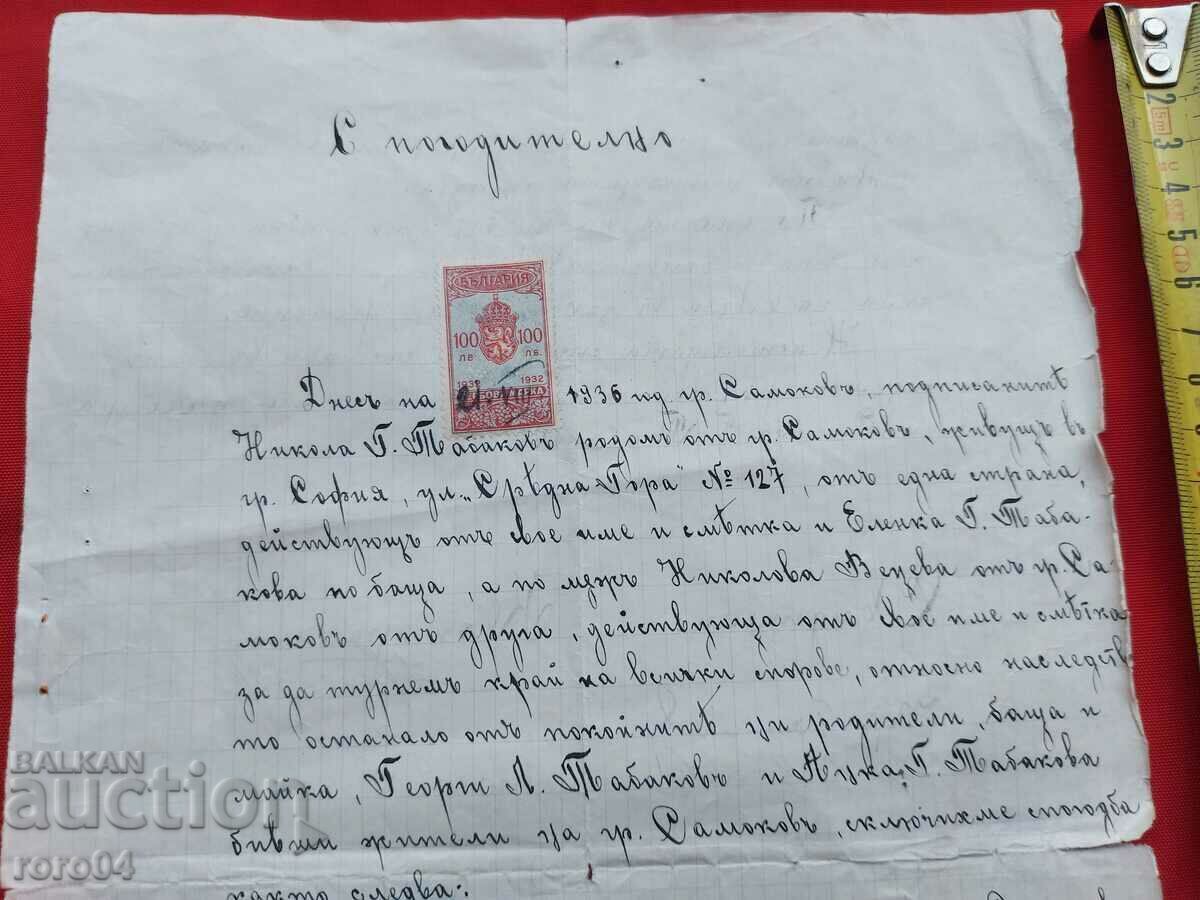 Спогодително
БЪЛГАРИЯ
100 100
ЛВ ЛВ.
1932 1932
21 VII
Днесъ на 1936 год гр. Самоковъ, подписанитѣ
Никола Г. Табаковъ родомъ отъ гр. Самоковъ, живущъ въ
гр. София, ул. „Срѣдна Гора" № 127, отъ една страна,
действующъ отъ свое име и смѣтка и Еленка Г. Таба-
кова по баща, а по мѫжъ Николова Вецева отъ гр. Са-
моковъ отъ друга, действующа отъ свое име и смѣтка
за да турнемъ край на всички спорове, относно наследств-
то останало отъ покойнитѣ ни родители, баща и
майка, Георги Л. Табаковъ и Г. Табакова
бивши жители на гр. Самоковъ, сключихме спогодба
както следва:
BALKAN
auction
roro04
1
2
3
4
5
6
7
8